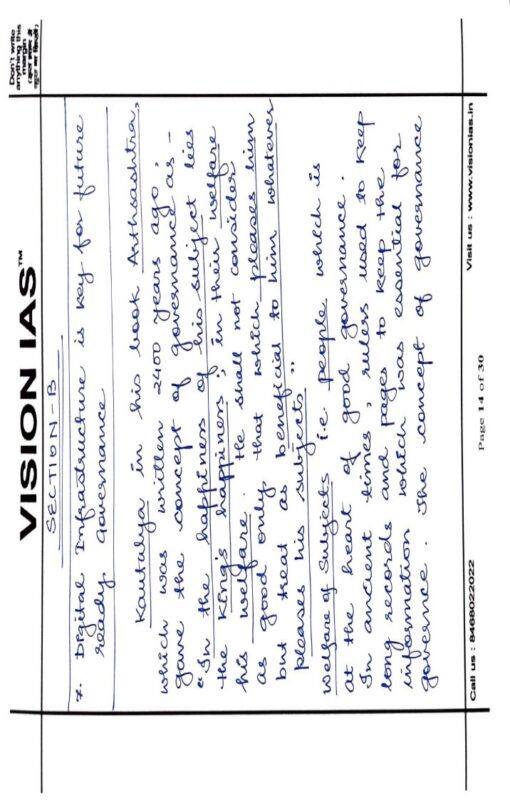 VISION IAS™
Don't write
anything this
margin
SECTION-B
7. Digital Infrastructure is key for future
ready governance
Kautalya in his book Arthsashtra,
which was written 2400 years ago,
gave the concept of governance as -
"In the happiness of his subject lies
the King's happiness", in their welfare
his welfare. He shall not consider
as good only that which pleases him
but treat as beneficial to him whatever
pleases his subjects"
Welfare of Subjects i.e. people which is
at the heart of good governance.
In ancient times, rulers used to keep
long records and pages to keep the
information which was essential for
governce. The concept of governance
Call us : 8468022022
Page 14 of 30
Visit us : www.visionias.in